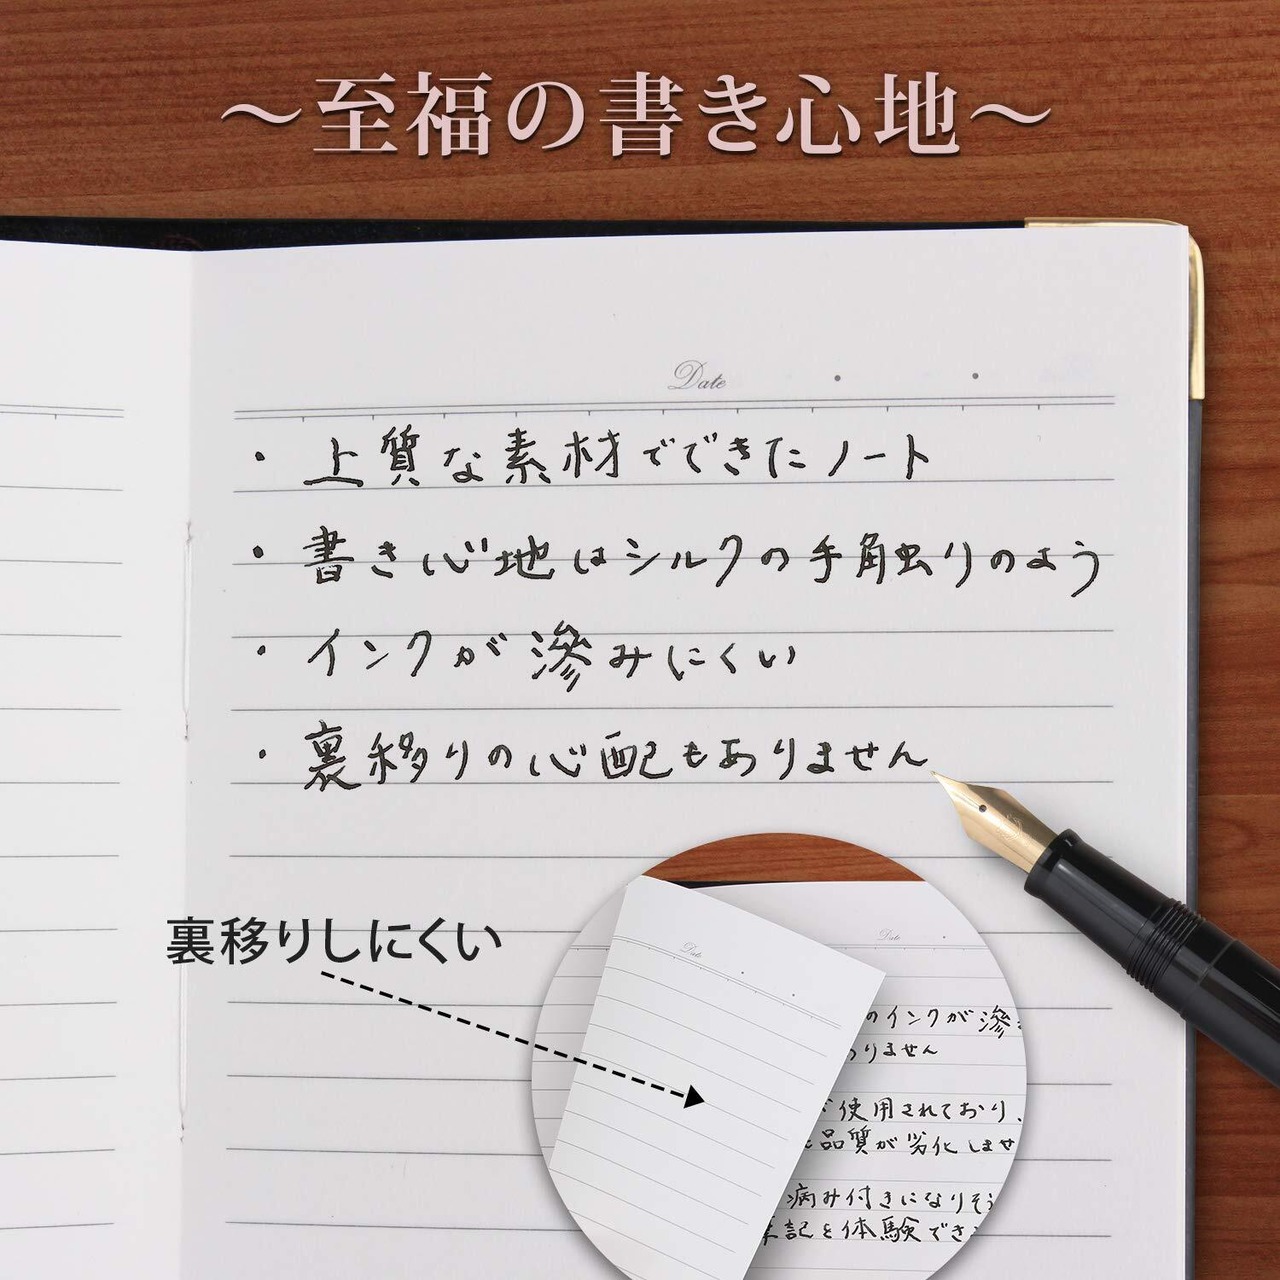 ～至福の書き心地～
Date
・上質な素材でできたノート
・書き心地はシルクの手触りのよう
・インクが滲みにくい
・裏移りの心配もありません
裏移りしにくい
Date
Date
のインクが滲
りません
使用されており、
品質が劣化しませ
病み付きになりそう
記を体験でき